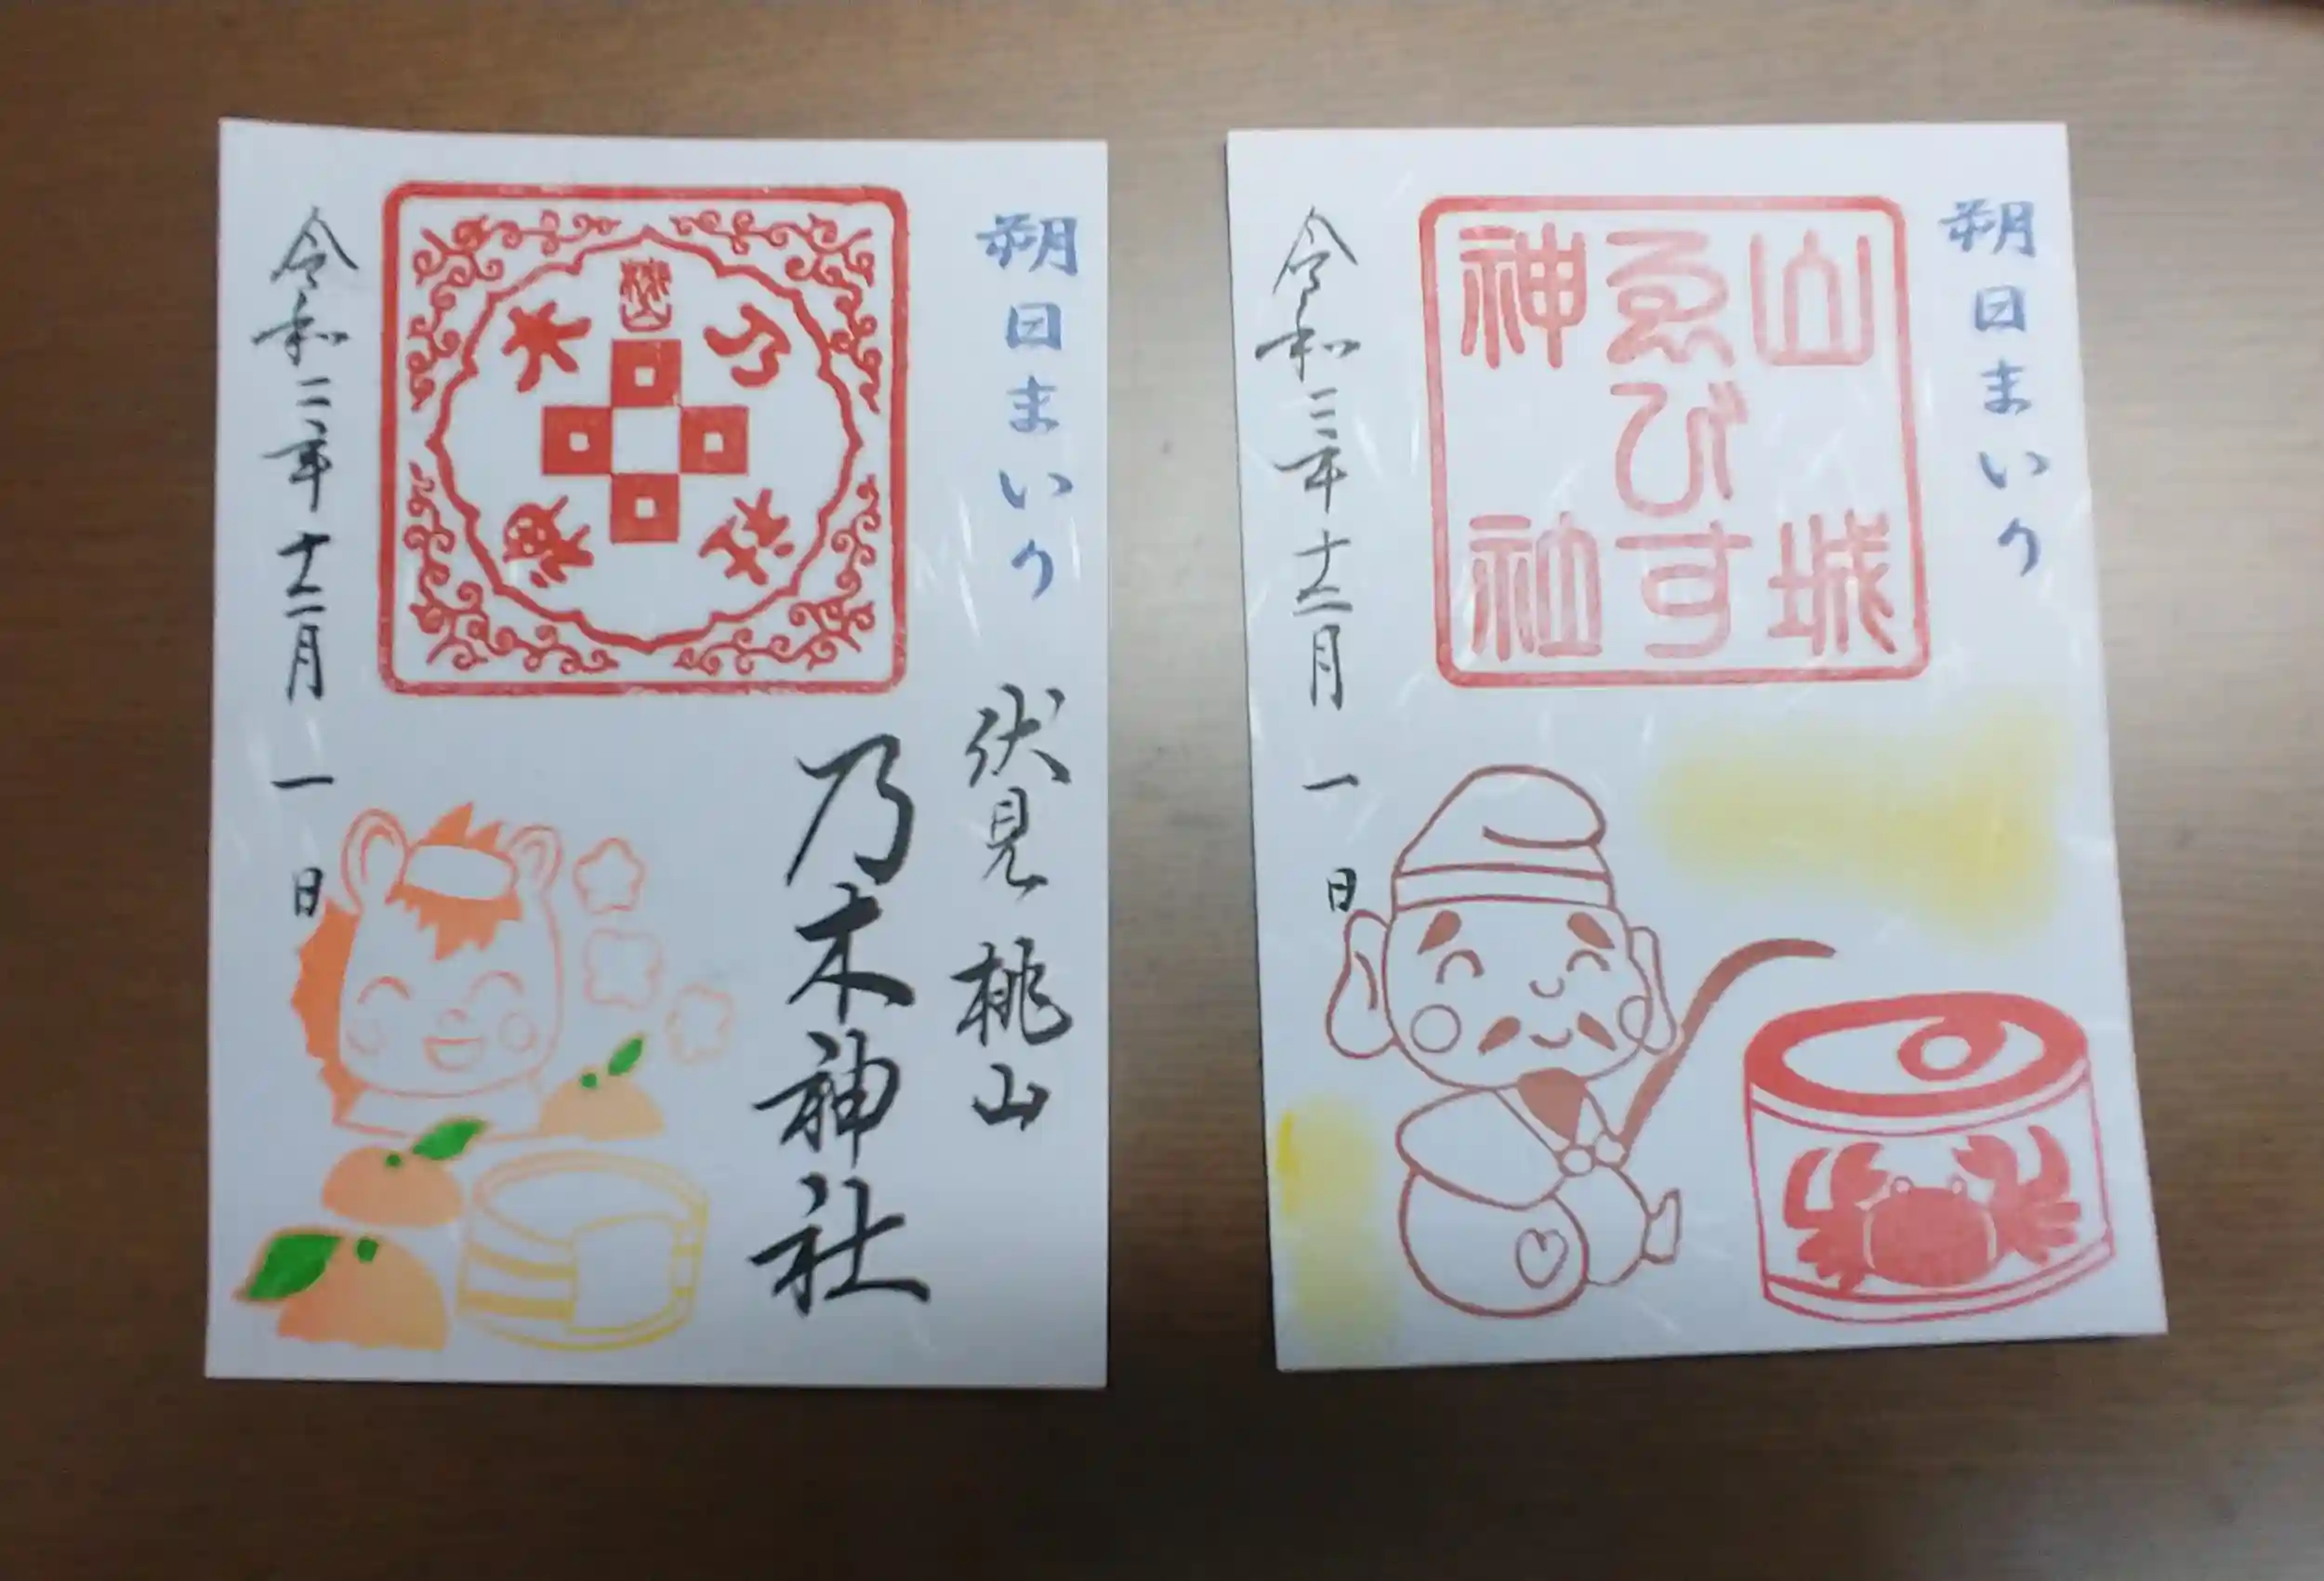 朔日まいり
伏見桃山
乃木神社
桃山
乃木神社
令和三年十二月一日
朔日まいり
山城
ゑびす
神社
令和三年十二月一日